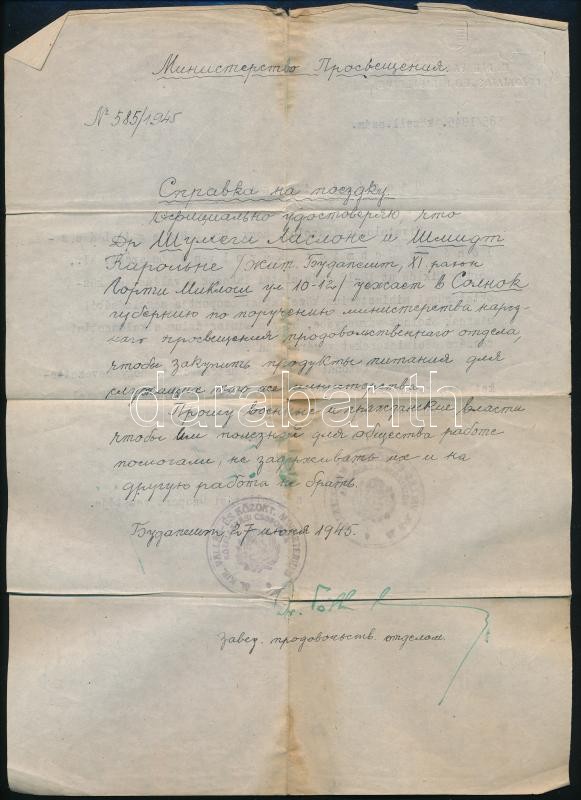 Министерство Просвещения.
№ 585/1945
Справка на поездку.
Официально удостоверяю что
Др Шумеги Ласлоне и Шмидт
Карольне /жит. Будапешт, XI район
Горти Миклош ул 10-12/ уезжает в Солнок
губернию по поручению министерства народ-
ного просвещения продовольственного отдела,
чтобы закупить продукты питания для
служащих того же министерства.
Прошу военные и гражданские власти
чтобы им полезной для общества работе
помогали, не задерживать их и на
другую работа не брать.
Будапешт, 27 июня 1945.
Dr. Tóth
завед. продовольств. отделом.
darabanth